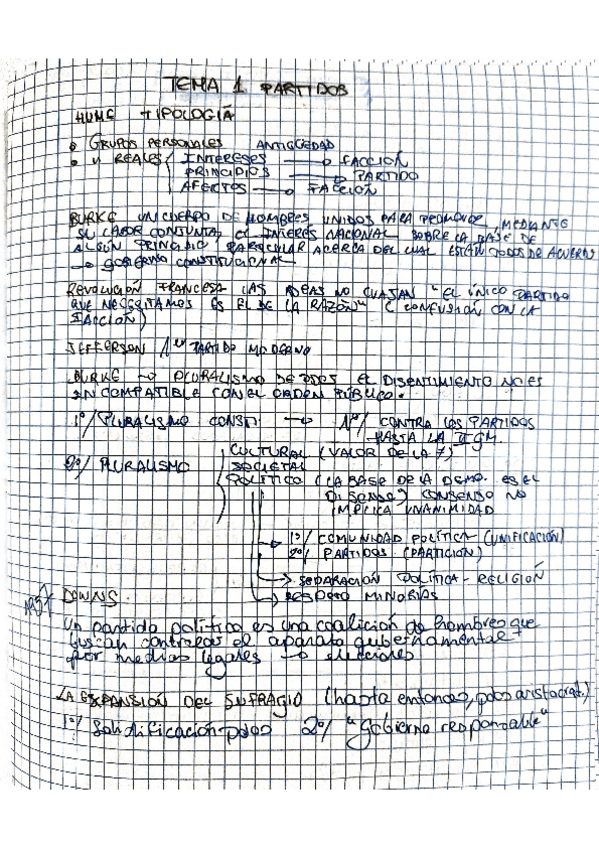 TEMA 1 PARTIDOS
HUME TIPOLOGÍA
• GRUPOS PERSONALES ANTIGÜEDAD
• " REALES INTERESES → FACCIÓN
PRINCIPIOS → PARTIDO
AFECTOS → FACCIÓN
BURKE UN CUERPO DE HOMBRES UNIDOS PARA PROMOVER, MEDIANTE
SU LABOR CONJUNTA, EL INTERÉS NACIONAL SOBRE LA BASE DE
ALGÚN PRINCIPIO PARTICULAR ACERCA DEL CUAL ESTÁN TODOS DE ACUERDO
→ GOBIERNO CONSTITUCIONAL
REVOLUCIÓN FRANCESA LAS IDEAS NO CUAJAN "EL ÚNICO PARTIDO
QUE NECESITAMOS ES EL DE LA RAZÓN" (CONFUSIÓN CON LA
FACCIÓN)
JEFFERSON / 1er PARTIDO MODERNO
BURKE → PLURALISMO DE PDOS EL DISENTIMIENTO NO ES
INCOMPATIBLE CON EL ORDEN PÚBLICO.
1º/ PLURALISMO CONSTI → 1º/ CONTRA LOS PARTIDOS
HASTA LA II GM.
2º/ PLURALISMO CULTURAL (VALOR DE LA ≠)
SOCIETAL
POLÍTICO (LA BASE DE LA DEMO. ES EL
DISENSO) CONSENSO NO
IMPLICA UNANIMIDAD
→ 1º/ COMUNIDAD POLÍTICA (UNIFICACIÓN)
2º/ PARTIDOS (PARTICIÓN)
→ SEPARACIÓN POLÍTICA - RELIGIÓN
→ RESPETO MINORÍAS
1957 DOWNS
Un partido político es una coalición de hombres que
buscan controlar el aparato gubernamental
por medios legales → elecciones
LA EXPANSIÓN DEL SUFRAGIO (hasta entonces, pdos aristocrat.)
1º/ Solidificación pdos 2º/ "gobierno responsable"